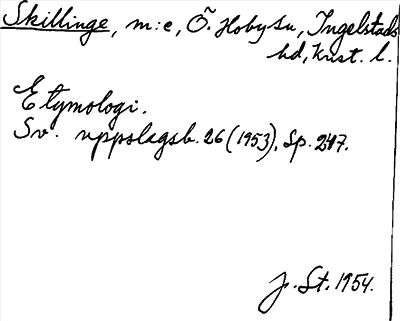 Skillinge, m:e, Ö. Hoby sn, Ingelstads
hd, Krist. l.
Etymologi.
Sv. uppslagsb. 26 (1953), Sp. 247.
J. St. 1954.